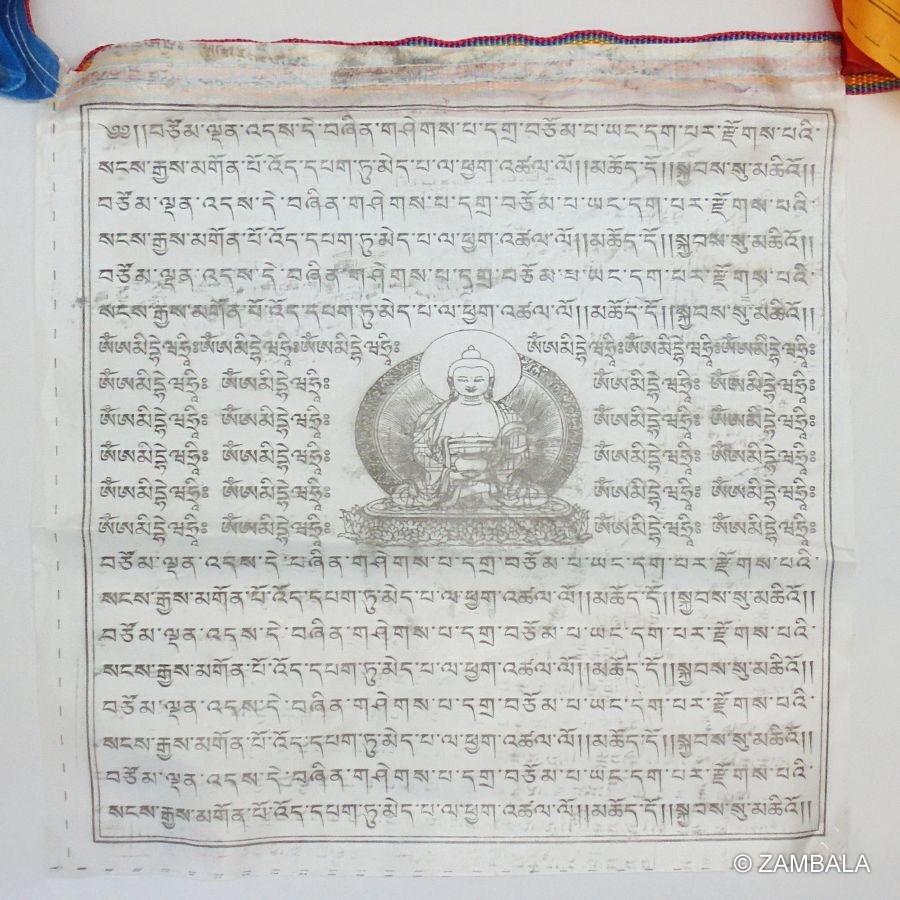 ༄༅།།བཅོམ་ལྡན་འདས་དེ་བཞིན་གཤེགས་པ་དགྲ་བཅོམ་པ་ཡང་དག་པར་རྫོགས་པའི་
སངས་རྒྱས་མགོན་པོ་འོད་དཔག་ཏུ་མེད་པ་ལ་ཕྱག་འཚལ་ལོ།།མཆོད་དོ།།སྐྱབས་སུ་མཆིའོ།།
བཅོམ་ལྡན་འདས་དེ་བཞིན་གཤེགས་པ་དགྲ་བཅོམ་པ་ཡང་དག་པར་རྫོགས་པའི་
སངས་རྒྱས་མགོན་པོ་འོད་དཔག་ཏུ་མེད་པ་ལ་ཕྱག་འཚལ་ལོ།།མཆོད་དོ།།སྐྱབས་སུ་མཆིའོ།།
བཅོམ་ལྡན་འདས་དེ་བཞིན་གཤེགས་པ་དགྲ་བཅོམ་པ་ཡང་དག་པར་རྫོགས་པའི་
སངས་རྒྱས་མགོན་པོ་འོད་དཔག་ཏུ་མེད་པ་ལ་ཕྱག་འཚལ་ལོ།།མཆོད་དོ།།སྐྱབས་སུ་མཆིའོ།།
ཨོཾཨམིདྷེཝཧྲཱིཿཨོཾཨམིདྷེཝཧྲཱིཿཨོཾཨམིདྷེཝཧྲཱིཿ ཨོཾཨམིདྷེཝཧྲཱིཿཨོཾཨམིདྷེཝཧྲཱིཿཨོཾཨམིདྷེཝཧྲཱིཿ
ཨོཾཨམིདྷེཝཧྲཱིཿ ཨོཾཨམིདྷེཝཧྲཱིཿ ཨོཾཨམིདྷེཝཧྲཱིཿ ཨོཾཨམིདྷེཝཧྲཱིཿ
ཨོཾཨམིདྷེཝཧྲཱིཿ ཨོཾཨམིདྷེཝཧྲཱིཿ ཨོཾཨམིདྷེཝཧྲཱིཿ ཨོཾཨམིདྷེཝཧྲཱིཿ
ཨོཾཨམིདྷེཝཧྲཱིཿ ཨོཾཨམིདྷེཝཧྲཱིཿ ཨོཾཨམིདྷེཝཧྲཱིཿ ཨོཾཨམིདྷེཝཧྲཱིཿ
ཨོཾཨམིདྷེཝཧྲཱིཿ ཨོཾཨམིདྷེཝཧྲཱིཿ ཨོཾཨམིདྷེཝཧྲཱིཿ ཨོཾཨམིདྷེཝཧྲཱིཿ
ཨོཾཨམིདྷེཝཧྲཱིཿ ཨོཾཨམིདྷེཝཧྲཱིཿ ཨོཾཨམིདྷེཝཧྲཱིཿ ཨོཾཨམིདྷེཝཧྲཱིཿ
བཅོམ་ལྡན་འདས་དེ་བཞིན་གཤེགས་པ་དགྲ་བཅོམ་པ་ཡང་དག་པར་རྫོགས་པའི་
སངས་རྒྱས་མགོན་པོ་འོད་དཔག་ཏུ་མེད་པ་ལ་ཕྱག་འཚལ་ལོ།།མཆོད་དོ།།སྐྱབས་སུ་མཆིའོ།།
བཅོམ་ལྡན་འདས་དེ་བཞིན་གཤེགས་པ་དགྲ་བཅོམ་པ་ཡང་དག་པར་རྫོགས་པའི་
སངས་རྒྱས་མགོན་པོ་འོད་དཔག་ཏུ་མེད་པ་ལ་ཕྱག་འཚལ་ལོ།།མཆོད་དོ།།སྐྱབས་སུ་མཆིའོ།།
བཅོམ་ལྡན་འདས་དེ་བཞིན་གཤེགས་པ་དགྲ་བཅོམ་པ་ཡང་དག་པར་རྫོགས་པའི་
སངས་རྒྱས་མགོན་པོ་འོད་དཔག་ཏུ་མེད་པ་ལ་ཕྱག་འཚལ་ལོ།།མཆོད་དོ།།སྐྱབས་སུ་མཆིའོ།།
བཅོམ་ལྡན་འདས་དེ་བཞིན་གཤེགས་པ་དགྲ་བཅོམ་པ་ཡང་དག་པར་རྫོགས་པའི་
སངས་རྒྱས་མགོན་པོ་འོད་དཔག་ཏུ་མེད་པ་ལ་ཕྱག་འཚལ་ལོ།།མཆོད་དོ།།སྐྱབས་སུ་མཆིའོ།།
© ZAMBALA